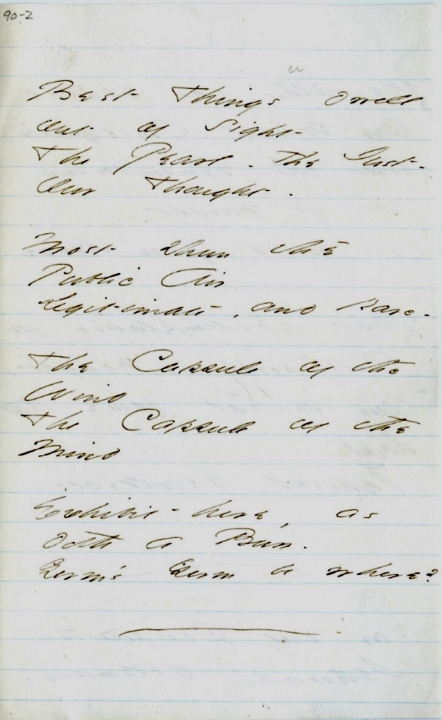 90-2
Best Things dwell
out of Sight -
The Pearl - the Just -
Our Thought -
Most shun the
Public Air
Legitimate, and Rare -
The Capsule of the
Wind
The Capsule of the
Mind
Exhibit here, as
doth a Burr -
Germ's Germ be where?